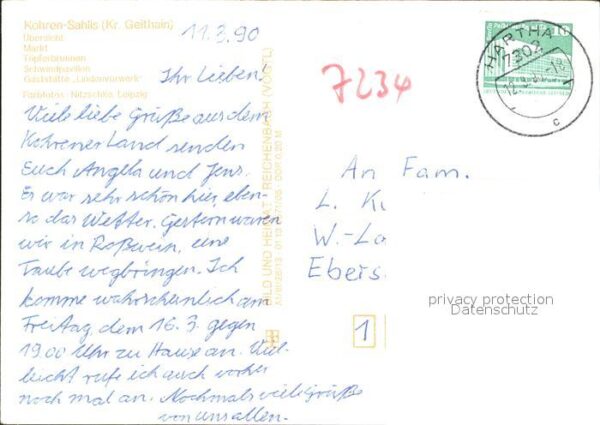 Kohren-Sahlis (Kr. Geithain)
Übersicht
Markt
Töpferbrunnen
Schwindpavillon
Gaststätte „Lindenvorwerk“
Farbfotos: Nitzschke, Leipzig
11.3.90
Ihr Lieben!
Viele liebe Grüße aus dem
Kohrener Land senden
Euch Angela und Jens.
Es war sehr schön hier, eben-
so das Wetter. Gestern waren
wir in Roßwein, eine
Taube wegbringen. Ich
komme wahrscheinlich am
Freitag, dem 16.3. gegen
19.00 Uhr zu Hause an. Viel-
leicht rufe ich auch vorher
noch mal an. Nochmals viele Grüße
von uns allen.
BILD UND HEIMAT REICHENBACH (VOGTL)
7234
10
HARTHA
7302
c
An Fam.
L.
W.-
Ebers
1
privacy protection
Datenschutz